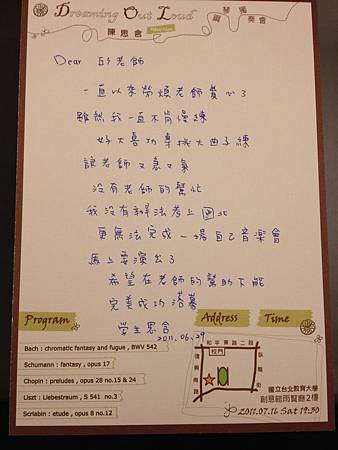 Dreaming Out Loud
鋼琴獨奏會
陳思會
Dear 邱老師
一直以來勞煩老師費心了
雖然我一直不肯慢練
好大喜功專挑大曲子練
讓老師又急又氣
沒有老師的幫忙
我沒有辦法考上國北
更無法完成一場自己音樂會
馬上要演出了
希望在老師的幫助下能
完美成功落幕
學生思會
2011.06.29
Program
Bach : chromatic fantasy and fugue , BWV 542
Schumann : fantasy , opus 17
Chopin : preludes , opus 28 no.15 & 24
Liszt : Liebestraum , S 541 no.3
Scriabin : etude , opus 8 no.12
Address
Time
和平東路二段
校門
臥龍街
國立台北教育大學
創意館雨賢廳2樓
2011.07.16 Sat 19:30